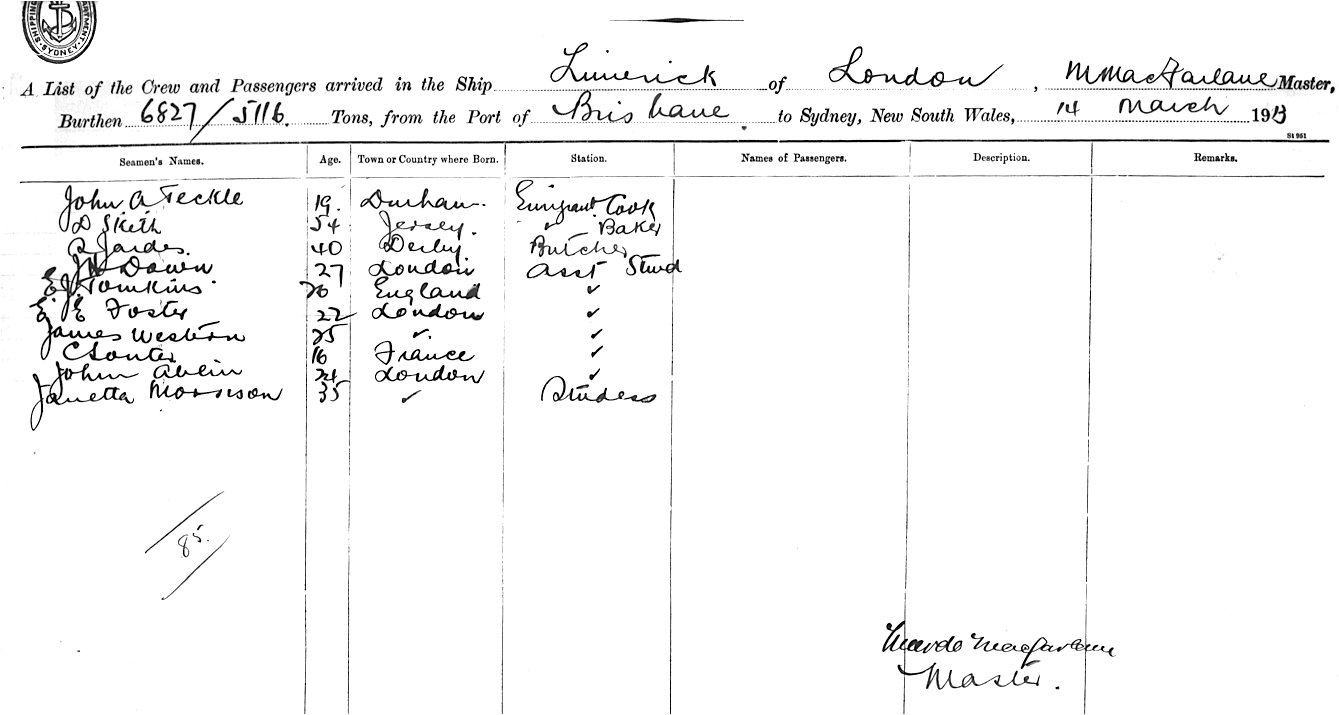 SHIPPING DEPARTMENT · SYDNEY
A List of the Crew and Passengers arrived in the Ship Limerick of London, M Macfarlane Master,
Burthen 6827/5116. Tons, from the Port of Brisbane to Sydney, New South Wales, 14 March 1913
St 951
Seamen's Names. Age. Town or Country where Born. Station. Names of Passengers. Description. Remarks.
John A Teckle 19. Durham. Emigrant Cook
D Sketh 54 Jersey. " Baker
R Jardes 40 Derby Butcher
J H Down 27 London Asst Stwd
E J Tomkins 26 England "
E E Foster 22 London "
James Western 25 " "
C Souter 16 France "
John 24 London "
Janetta Morrison 35 " Stwdess
85.
Murdo Macfarlane
Master.